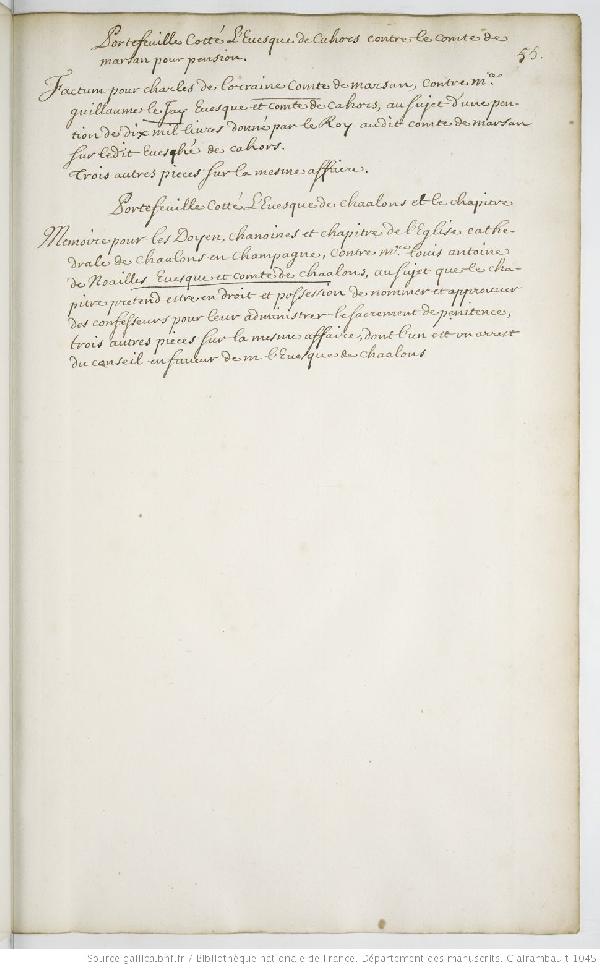 Portefeuille Cotté L'Evesque de Cahors contre le comte de
marsan pour pension.
55.
Factum pour charles de Lorraine Comte de marsan, contre mre
guillaume le Jay Evesque et comte de cahors, au sujet d'une pen-
tion de dix mil livres donné par le Roy audit comte de marsan
sur ledit Evesché de cahors.
Trois autres pieces sur la mesme affaire.
Portefeuille Cotté L'Evesque de chaalons et le chapitre
Memoire pour les Doyen, chanoines et chapitre de l'Eglise cathe-
drale de chaalons en champagne, contre mre Louis antoine
de Noailles Evesque et comte de chaalons, au sujet que le cha-
pitre pretend estre en droit et possession de nommer et approuver
des confesseurs pour leur administrer le sacrement de penitences,
trois autres pieces sur la mesme affaire, dont l'un est un arrest
du conseil en faveur de m. l'Evesque de chaalons
Source gallica.bnf.fr / Bibliothèque nationale de France. Département des manuscrits. Clairambault 1045